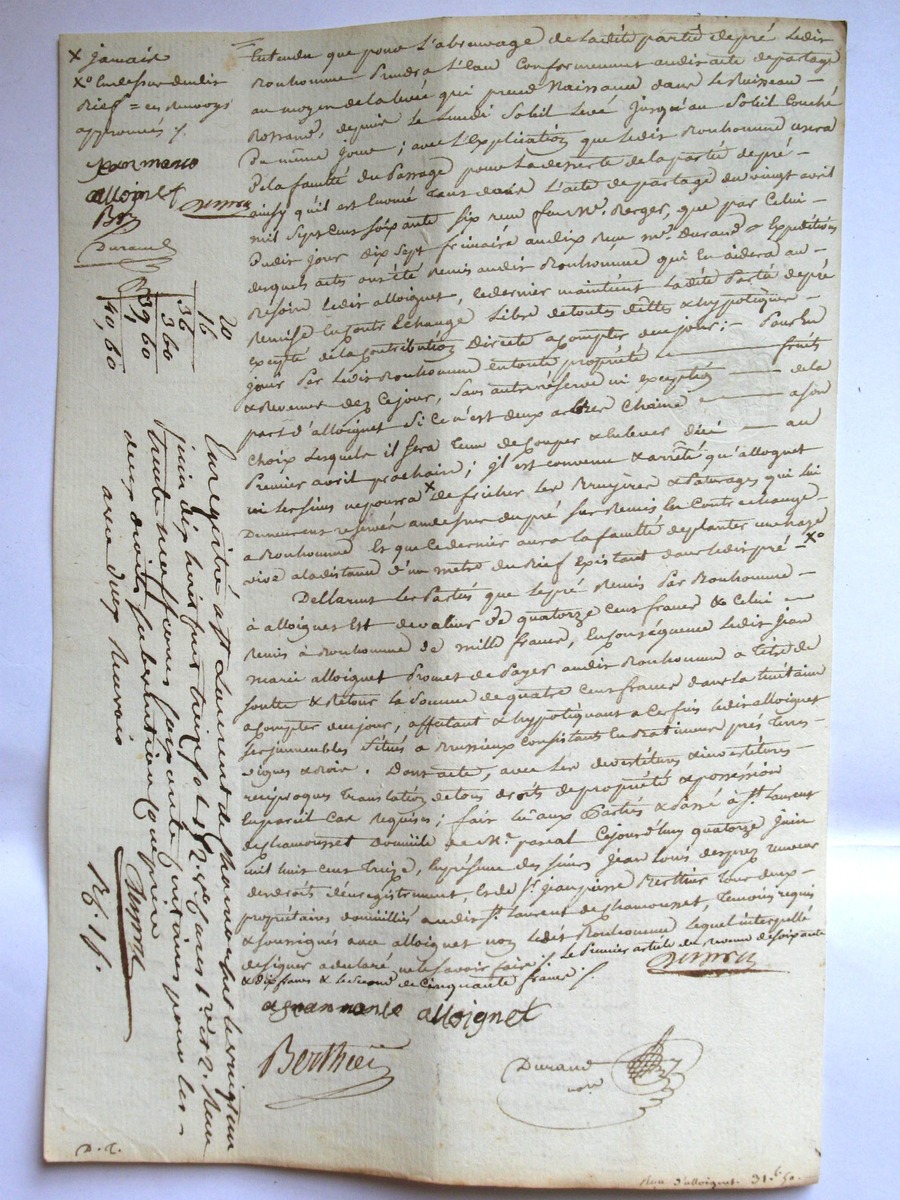 x jamais
xo au dessus dudit
Rief = en Renvoys
approuvés /.
jean marie
alloignet
Br
Durand
Entendu que pour L'abreuvage de ladite partie de pré Ledit
Bonhomme Prendra L'Eau Conformement audit acte de partage
au moyen de la levée qui prend Naissance dans le Ruisseau
Rossand, depuis le Lundi Soleil Levé Jusqu'au Soleil Couché
Du même jour ; avec L'Explication que Ledit Bonhomme usera
De la faculté du Passage pour La desserte de la partie de pré
ainsy qu'il est Enoncé Tant dans L'acte de partage du vingt avril
mil Sept Cent Soixante Six reçu par Me. Berger, que par Celui
Dudit jour dix Sept frimaire an dix Reçu me. Durand & Expéditions
desquels actes ont été Remis audit Bonhomme qui en aidera au
Besoin Ledit alloignet, Ce dernier maintient Ladite Partie de pré
Remise En Contre Echange Libre de toutes dettes & hypotèques
excepté de la Contribution directe a Compter de ce jour ; Pour En
Jouir Par Ledit Bonhomme en toute propriété fruits
& Revenus dez Ce jour, Sans autre réserve ni exception de la
part d'alloignet Si Ce n'est deux arbres Chaine a son
Choix Lesquels il Sera Tenu de Couper & Enlever d'ici au
Premier avril prochain ; il est Convenu & arrêté qu'alloignet
ni les siens ne pourra x Défricher Les Bruyères & Paturages qui lui
Demeurent réservés au dessus du pré Sus Remis En Contre échange
a Bonhomme Et que Ce dernier aura La faculté de planter une haye
vive a la distance d'un metre du Rief Existant dans Ledit pré xo
Déllarent les Parties que le pré Remis Par Bonhomme
à alloignet Est de valeur de quatorze Cent francs & Celui
Remis à Bonhomme de mille francs, En Conséquence Ledit Jean
marie alloignet Promet de Payer audit Bonhomme à Titre de
Soulte & Retour la Somme de quatre Cent francs dans la
a Compter de ce jour, affectant & hypotéquant a Ces fins Ledit alloignet
Ses immeubles Situés a Brussieux Consistants En Batiments prés Terres
vignes & Bois. Dont acte, avec les devestitures & investitures
réciproques Translation de tous droits de propriété & possession
En pareil Cas Requises ; fait Lû aux Parties & Passé à St. Laurent
de Chamousset Domicile de Me. pascal Cejourd'huy quatorze Juin
mil huit Cent Treize, En présence des Sieurs Jean Louis despres receveur
des droits d'enregistrement, Et de Sr. jean pierre Berthier Tous deux
propriétaires domicilliés audit St. Laurent de Chamousset Temoins requis
& Soussignés avec alloignet non Ledit Bonhomme Lequel interpellé
de signer a declaré ne le Savoir faire /. Le Premier article du revenu de Soixante
& dix francs & le Second de Cinquante francs /.
jean marie alloignet
Berthier
Durand
nore
20
16
36
360
39,60
40,60
Enregistré a St Laurent de Chamousset le vingt un
juin dix huit cent treize fo 152. vo Cases 1re et 2. Reçu
trente neuf francs soixante centimes pour les
deux droits subvention comprise
R. 15 f.
D. L.
Reçu d'alloignet. 31 f. 50